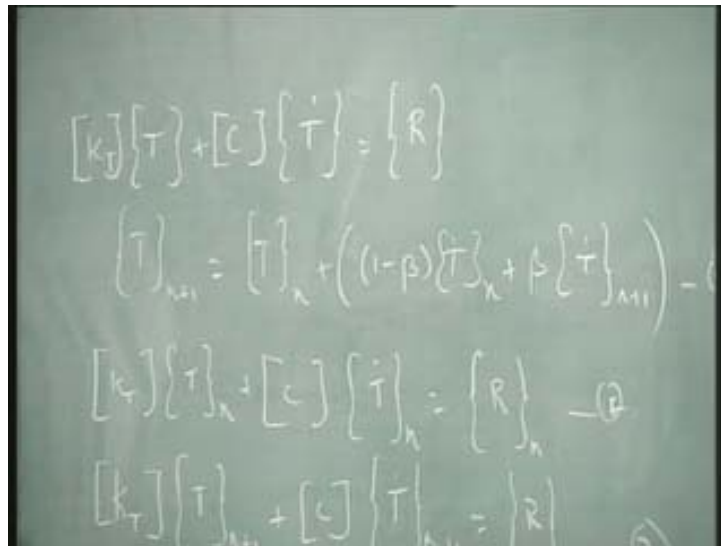 [K_T]{T} + [C]{Ṫ} = {R}
{T}_{n+1} = {T}_n + ((1-β){Ṫ}_n + β{Ṫ}_{n+1}) - (
[K_T]{T}_n + [C]{Ṫ}_n = {R}_n - ②
[K_T]{T}_{n+1} + [C]{Ṫ}_{n+1} = {R}